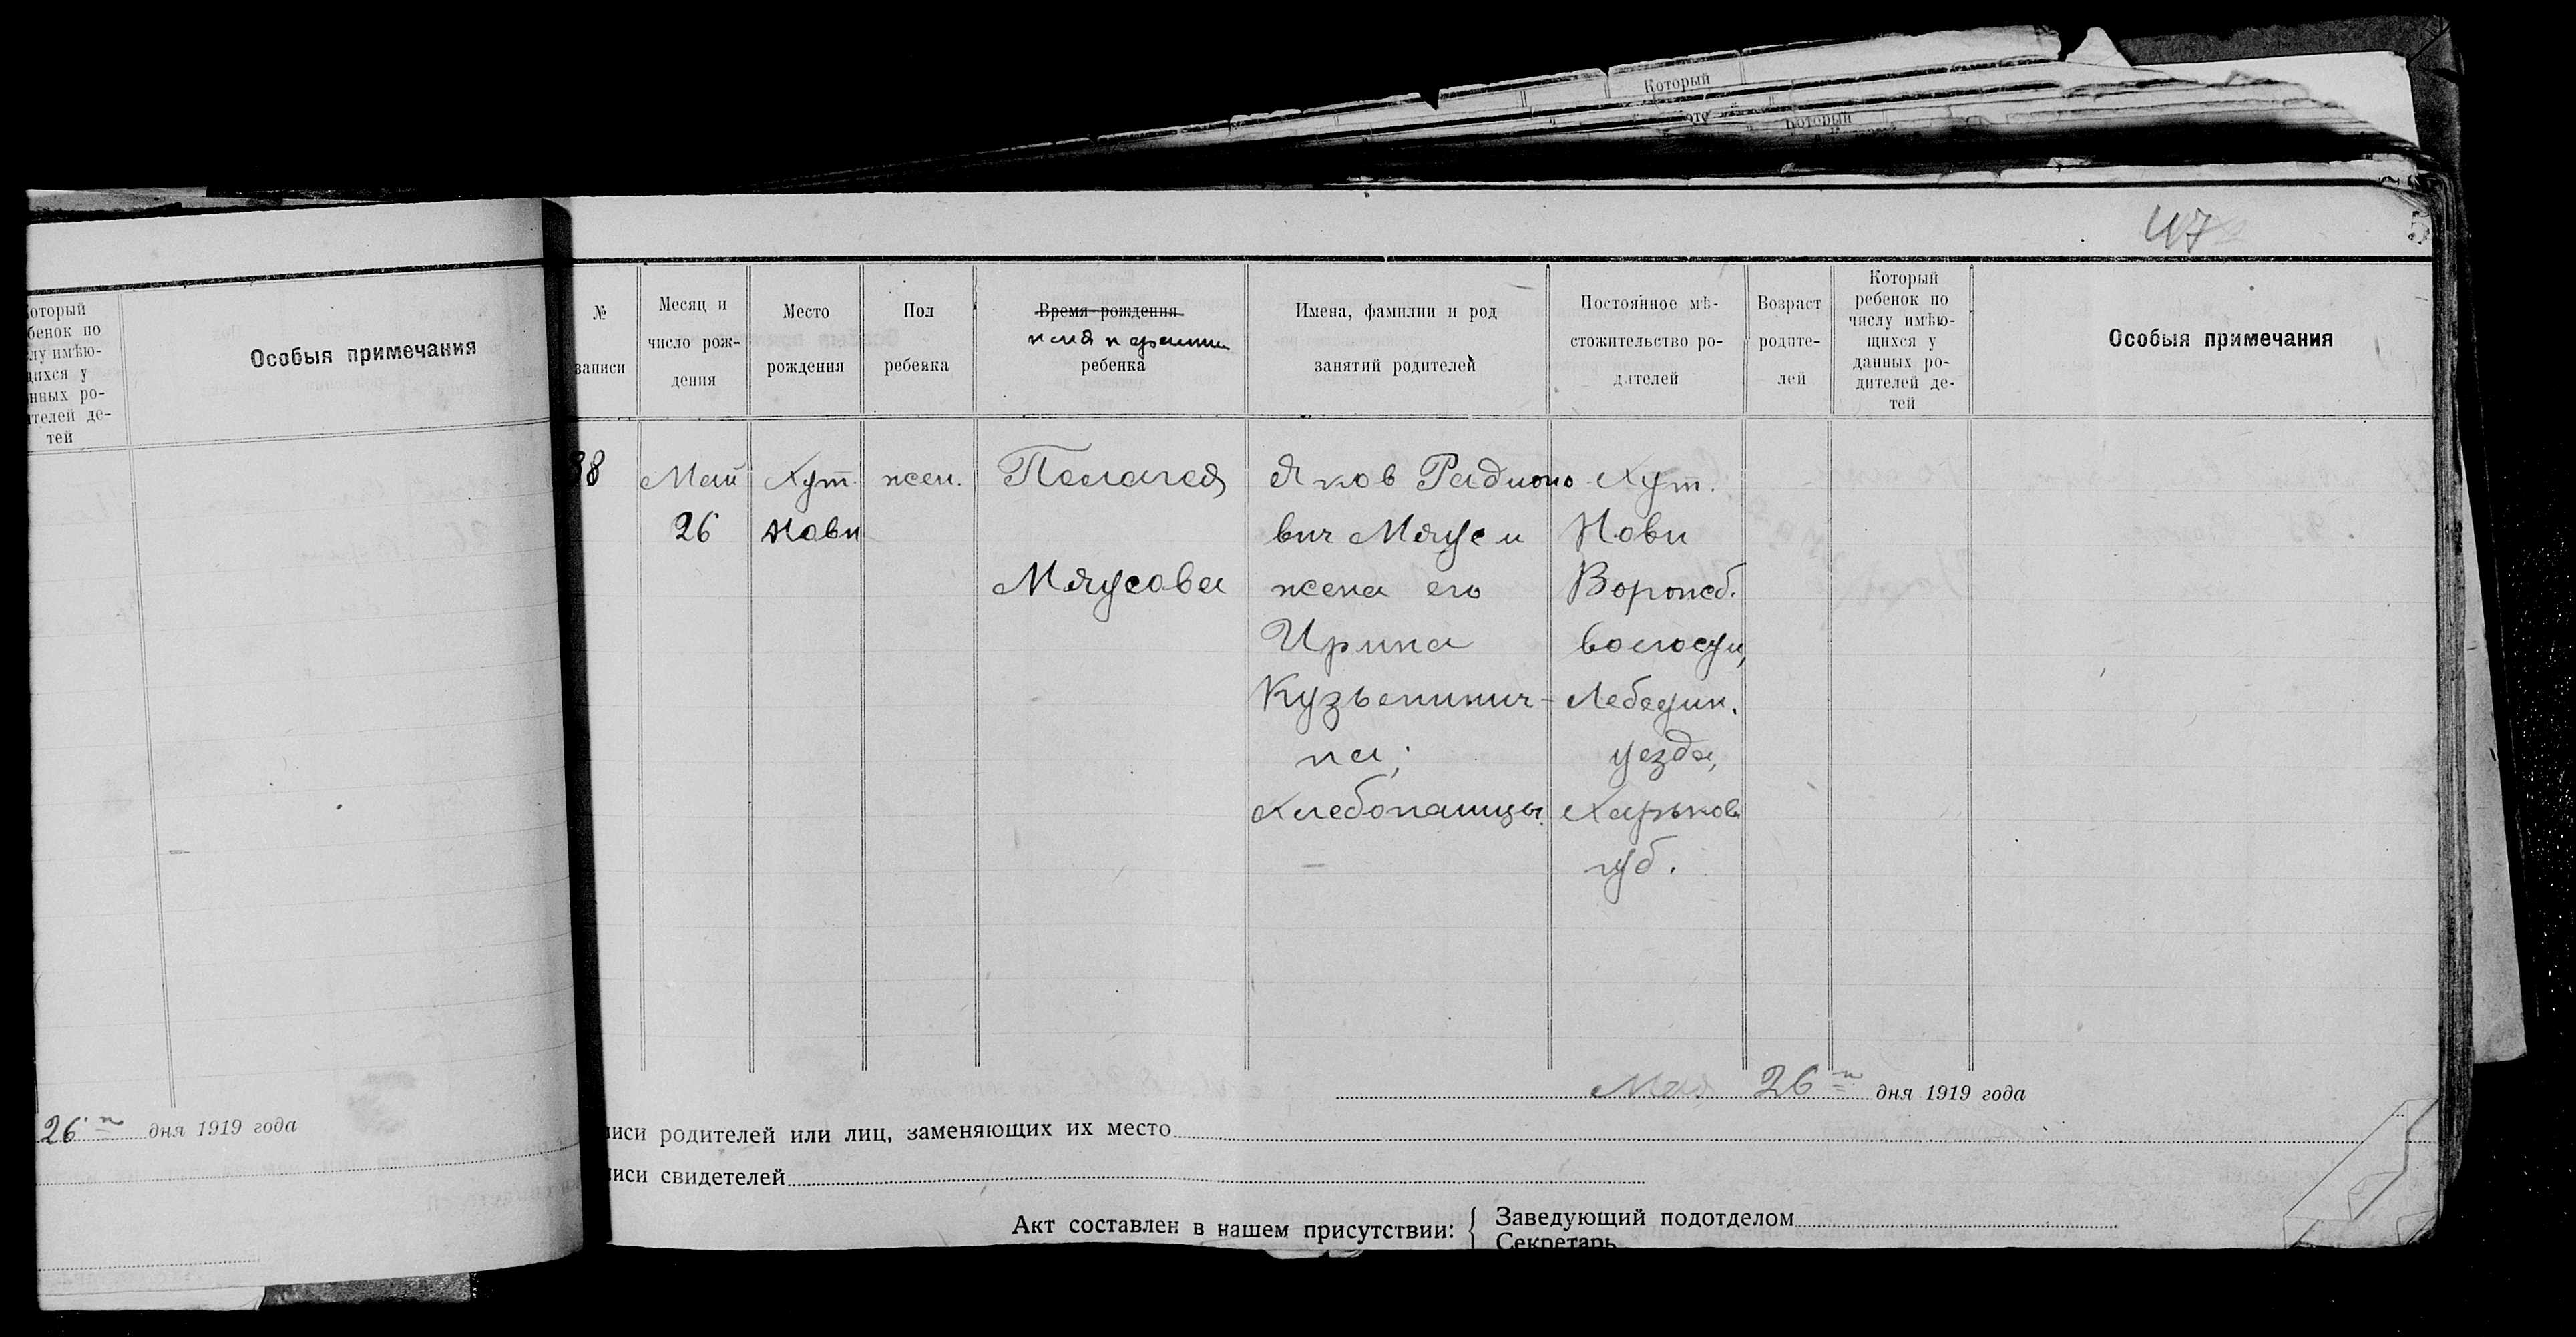 Который
Который
47
5
оторый
бенок по
лу имѣю-
щихся у
нных ро-
ителей де-
тей
Особыя примечания
26 дня 1919 года
№
записи
Месяц и
число рож-
дения
Место
рождения
Пол
ребенка
Время рождения
имя и фамилия
ребенка
Имена, фамилии и род
занятий родителей
Постоянное мѣ-
стожительство ро-
дителей
Возраст
родите-
лей
Который
ребенок по
числу имѣю-
щихся у
данных ро-
дителей де-
тей
Особыя примечания
38
Май
26
Хут.
Нови
жен.
Пелагея
Мяусова
Яков Радионо
вич Мяус и
жена его
Ирина
Кузьминич-
на;
Хлебопашцы.
Хут.
Нови
Ворожб.
волости,
Лебедин.
уезда,
Харьков
губ.
Мая 26 дня 1919 года
иси родителей или лиц, заменяющих их место
иси свидетелей
Акт составлен в нашем присутствии:
Заведующий подотделом
Секретарь